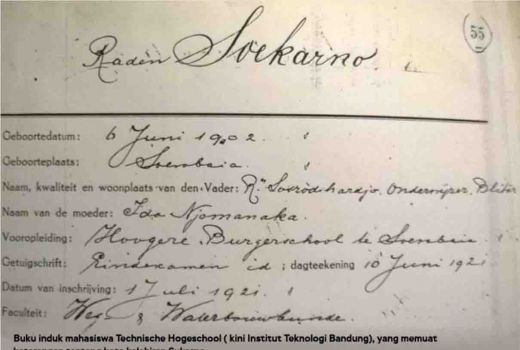 55
Raden Soekarno
Geboortedatum: 6 Juni 1902
Geboorteplaats: Soerabaia
Naam, kwaliteit en woonplaats van den Vader: Rn Sosrodihardjo, Onderwijzer, Blitar
Naam van de moeder: Ida Njomanaka.
Vooropleiding: Hoogere Burgerschool te Soerabaia
Getuigschrift: Eindexamen id; dagteekening 10 Juni 1921
Datum van inschrijving: 1 Juli 1921.
Faculteit: Weg & Waterbouwkunde.
Buku induk mahasiswa Technische Hogeschool ( kini Institut Teknologi Bandung), yang memuat